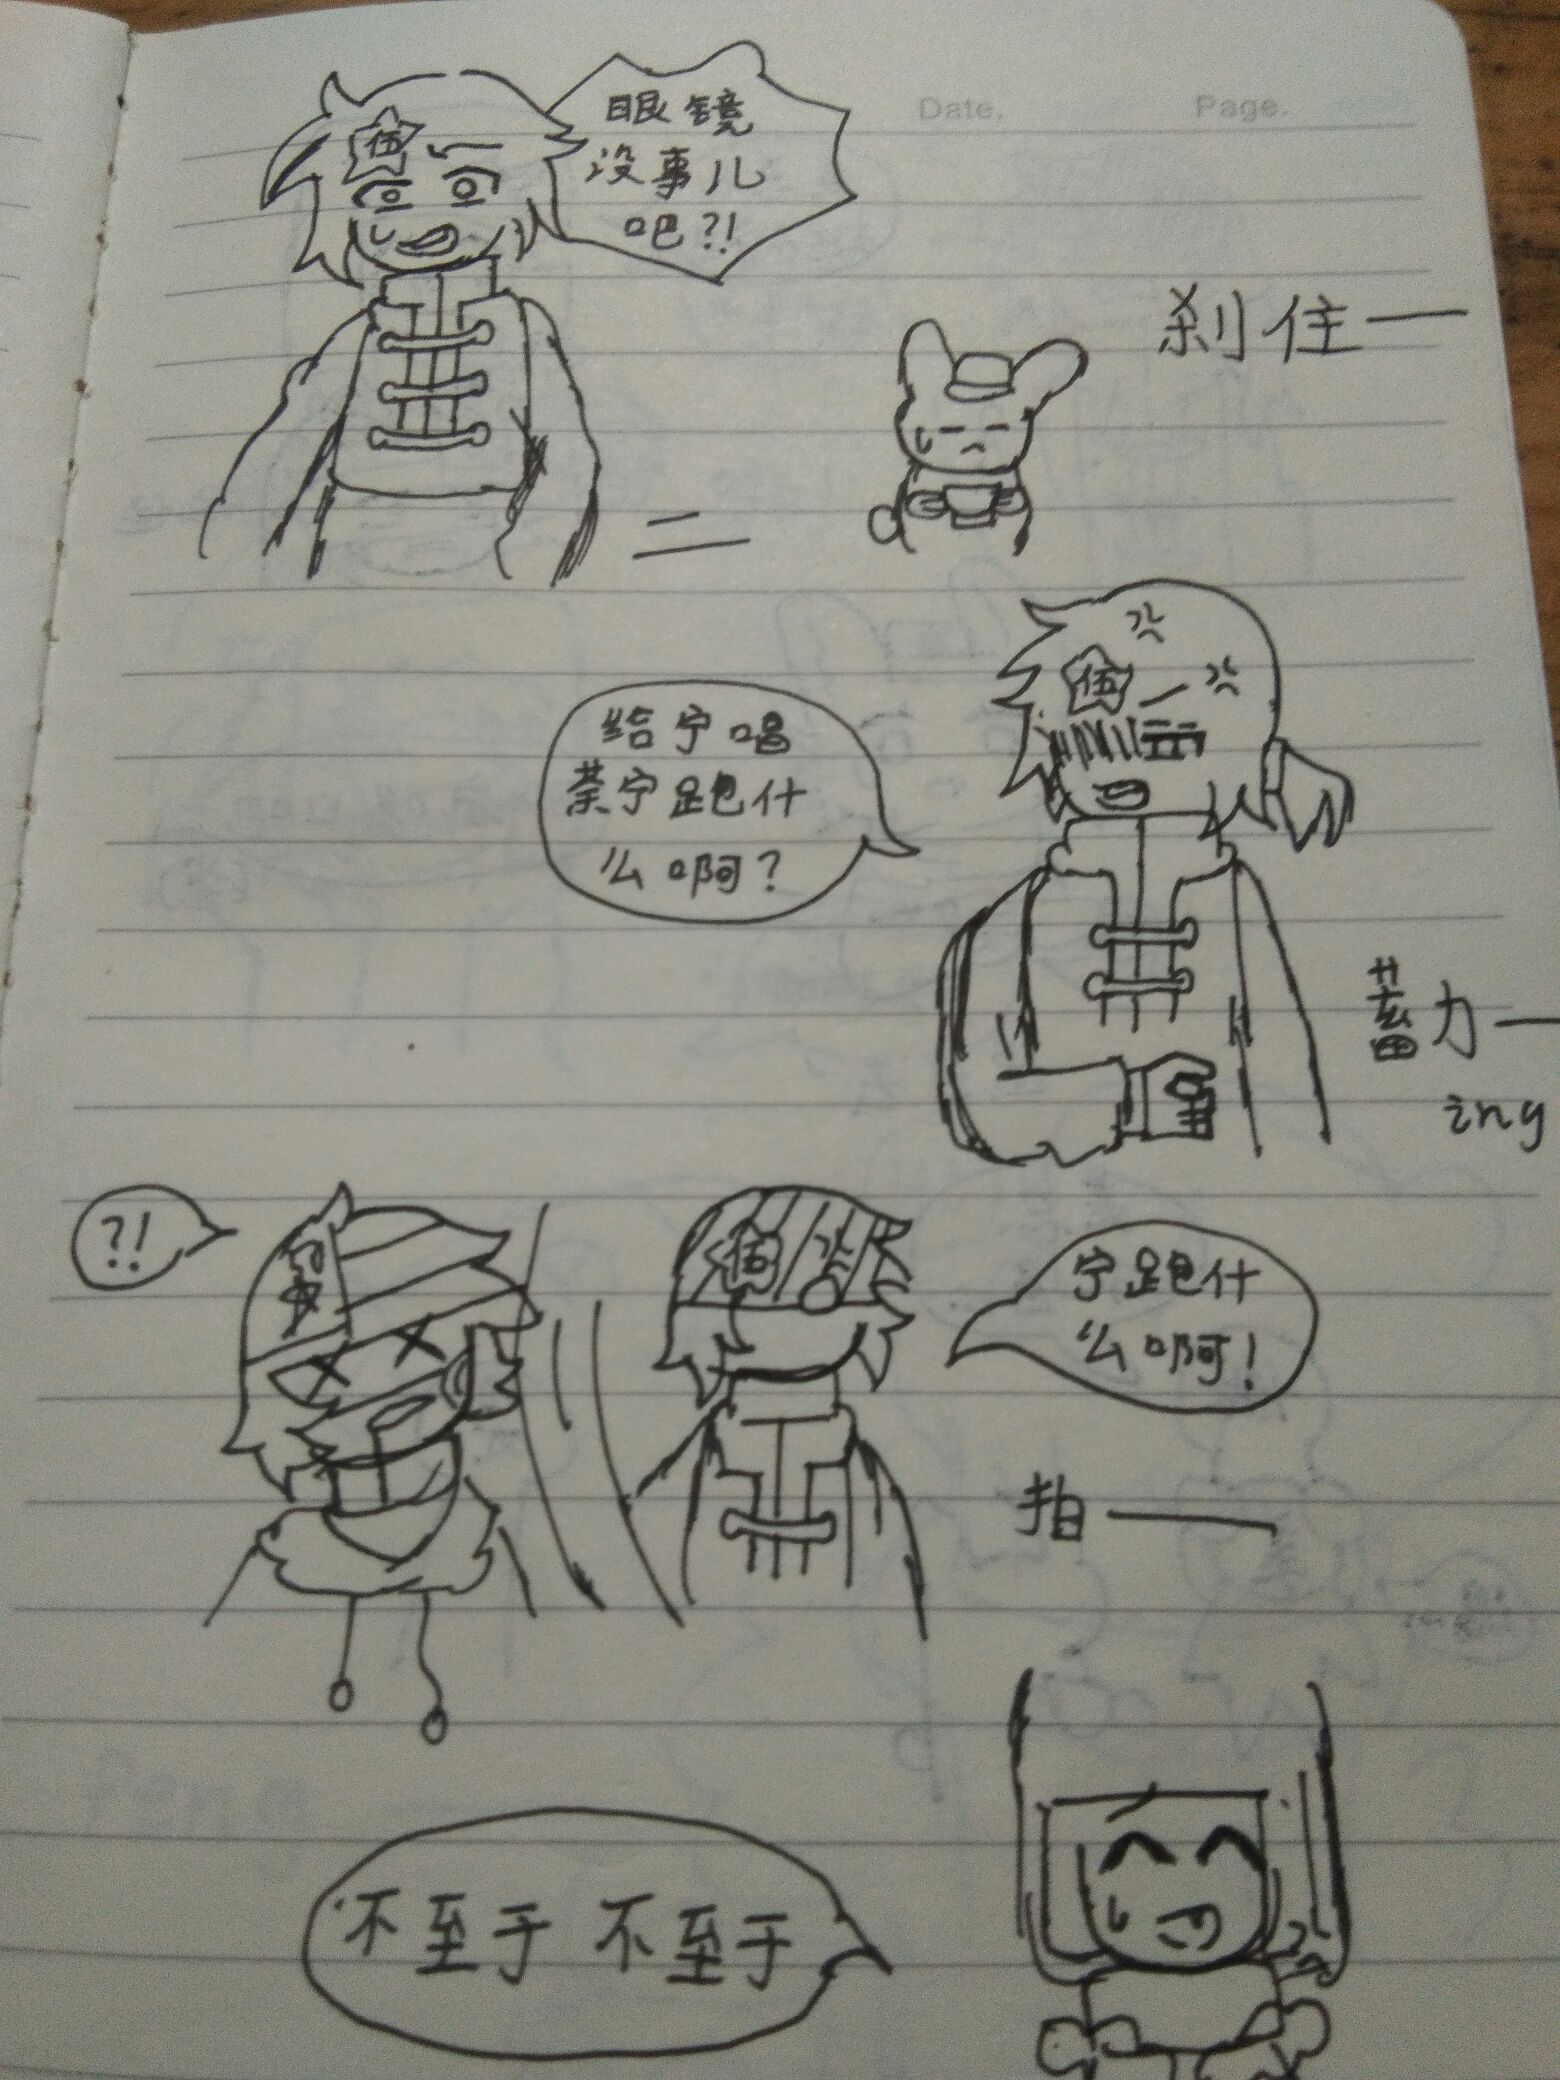 Date.
Page.
伍
眼镜
没事儿
吧?!
刹住一
伍
给宁唱
荼宁跑什
么啊?
蓄力一
ing
?!
伍
宁跑什
么啊!
拍一
不至于 不至于